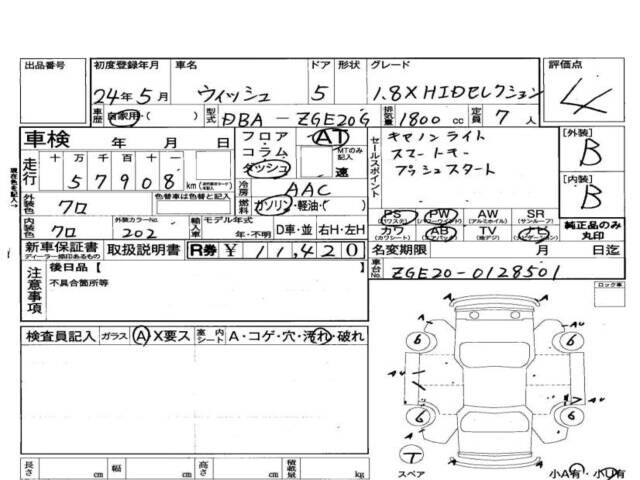 出品番号
初度登録年月 車名 ドア 形状 グレード 評価点
24年5月 ウィッシュ 5 1.8X HIDセレクション 4
車歴 自家用・( ) 型式 DBA-ZGE20G 排気量 1800 cc 定員 7 人
車検 年 月 日
フロア コラム ダッシュ AT MTのみ記入 速
セールスポイント
キセノンライト
スマートキー
プッシュスタート
[外装] B
[内装] B
走行 十 万 千 百 十 一
57908 km
冷房 AAC
燃料 ガソリン・軽油・( )
外装色 クロ 色替車は色替と記入
内装色 クロ 外装カラーNo. 202
輸入車 モデル年式 年・不明 D車・並 右H・左H
PS (パワステ) PW (パワーウインドウ) AW (アルミホイル) SR (サンルーフ)
カワ (カワシート) AB (エアバック) TV (地デジ) ナビ (ナビゲーション)
純正品のみ丸印
新車保証書 ディーラー捺印あるもの 取扱説明書 R券 ¥ 11,420
名変期限 月 日迄
車台No. ZGE20-0128501
注意事項
後日品 [ ]
不具合箇所等
ロック車
検査員記入 ガラス A X要ス 室内シート A・コゲ・穴・汚れ・破れ
A
A
6
6
AU
AU
AU
6
6
T
スペア
小A有・小U有
長さ cm 幅 cm 高さ cm 積載量 kg